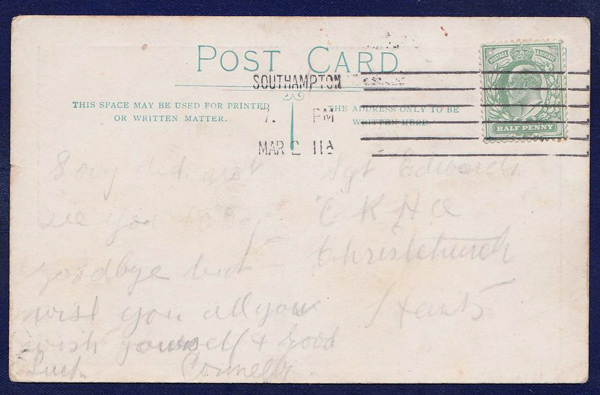 POST CARD
SOUTHAMPTON
THIS SPACE MAY BE USED FOR PRINTED
OR WRITTEN MATTER.
THE ADDRESS ONLY TO BE
WRITTEN HERE.
7. PM
MAR 2 11
HALF PENNY
Sory did not
see you to say
goodbye but
wish you all you
wish yourself & good
Luck. Connelly
Sgt Edwards
Christchurch
Hants